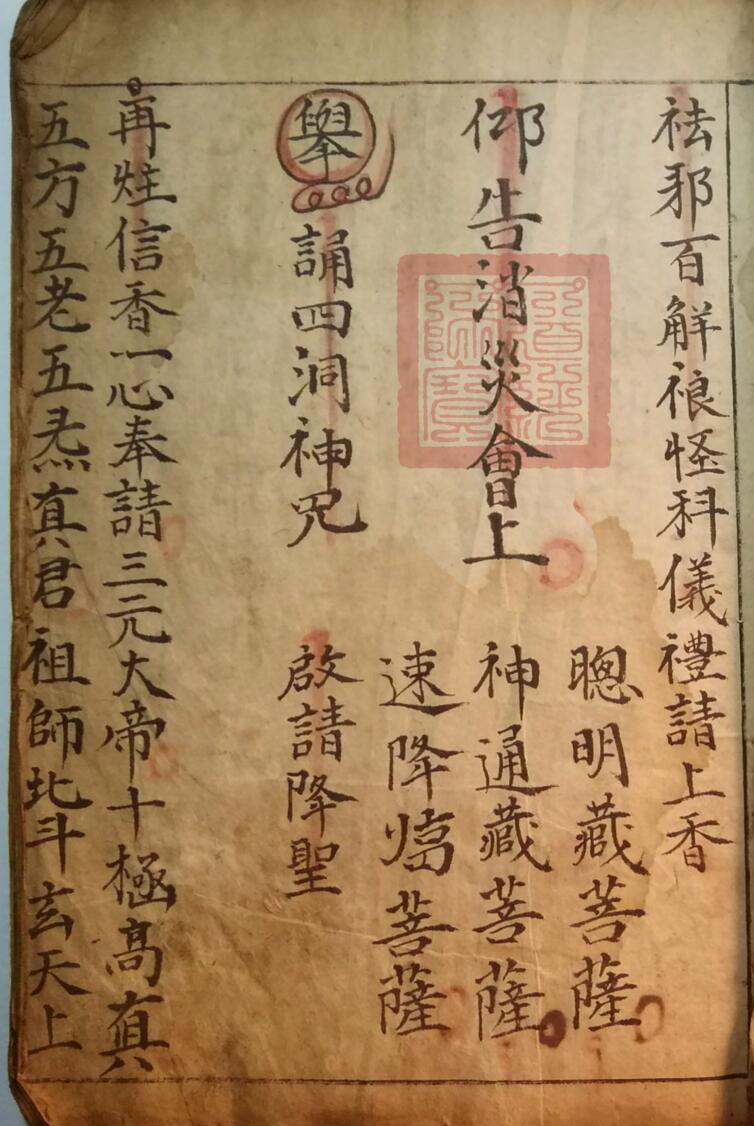 祛邪百解禳怪科儀禮請上香
仰告消災會上
聰明藏菩薩
神通藏菩薩
速降焴菩薩
舉
誦四洞神咒
啟請降聖
再炷信香一心奉請三元大帝十極髙真
五方五老五炁真君祖師北斗玄天上